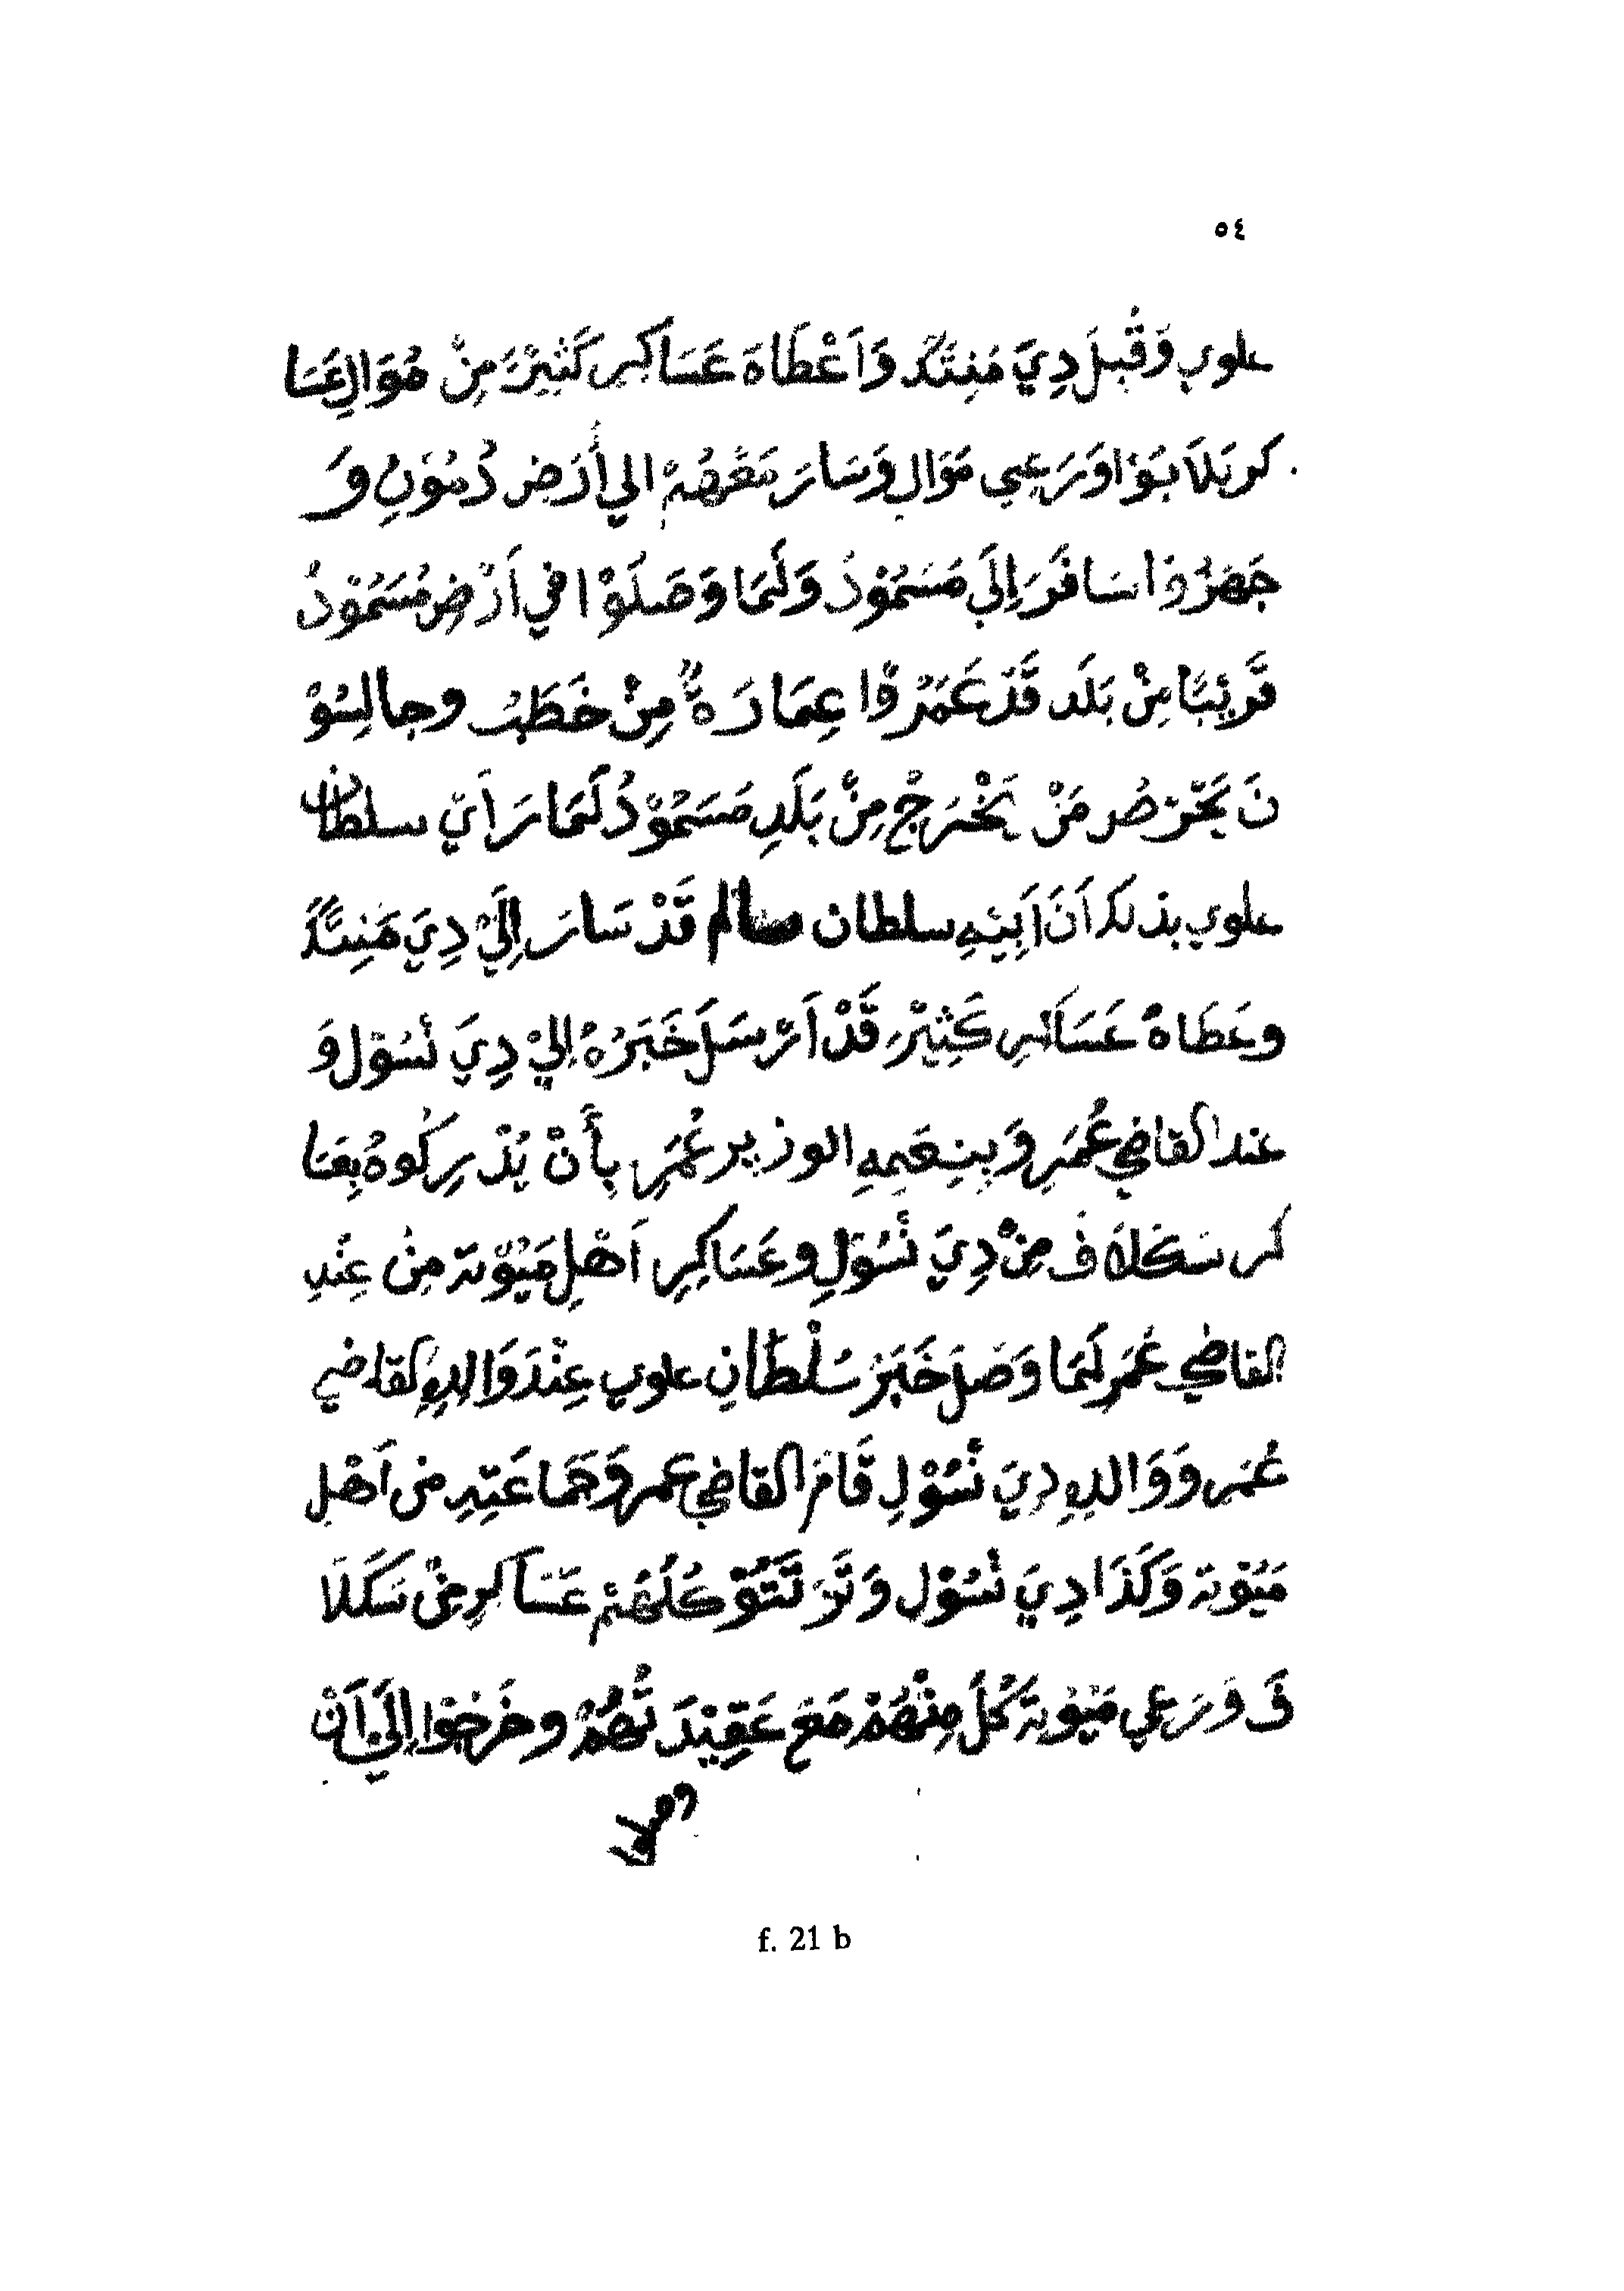 ٥٤
علوي وَقُبِلَ دِيَ مَنِتَكُ وَاَعْطَاهَ عَسَاكِر كَثِيْرَ مِنْ مُوَالِ عَسَا
كر بَلاَ بَوَا وَرَعِي مَوَالِ وَسَارَ مَعَهُمْ الي أَرَض دُمُوْنِ وَ
جَهَزُوْا سَافَرَ اِلَي مَسَمُوْدُ وَلَمَا وَصَلُوْا في اَرْضِ مُسَمُوْدُ
قَرِيْبًا مِنْ بَلَد قَدْ عَمَرُوْا عِمَارَةً مِنْ خَطَبُ وجالِسُوْ
نَ يَحْرَصُ مَنْ يَخْرَجْ مِنْ بَلَدِ مَسَمُوْدُ لَمَا رَأَيَ سلطان
علوي بذلك اَنَ اَبِيْهِ سلطان سالم قَدْ سَارَ اِلَيْ دِيَ مَنِتَكَ
وعَطَاهُ عَسَاكر كَثِيْرِ قَدْ اَرْسَلَ خَبَرُهُ اِلَيْ دِيَ نْسُوْل وَ
عند القاضي عُمَرِ وَبِنِعَمِهِ الوزير عُمَرِ بِأَنْ يُدْرِكُوهُ بِعَسَا
كر سَكَلاَفَ مِنْ دِيَ نْسُوْلِ وعَسَاكِرِ اَهْلِ مَيُوْتَ مِنْ عِنْدِ
القاضي عُمَر لَمَا وَصَلَ خَبَرُ سُلْطَانِ علوي عِنْدَ وَالِدِهِ القاضي
عُمَر وَوَالِدِهِ دِيَ نْسُوْلِ قَامَ القاضي عمر وَجَمَاعَتِهِ من اَهْلِ
مَيُوْتَ وَكَذَا دِيَ نْسُوْل وَتَرَتَّبُوْ كُلَهُمْ عَسَاكِرِ مِنْ سَكَلاَ
فَ وَرَعِي مَيُوْتَ كُلَ مِنْهُمْ مَعَ عَقِيْدَتُهُمْ وخَرَجُوْا اِلَيَ اَنْ
f. 21 b